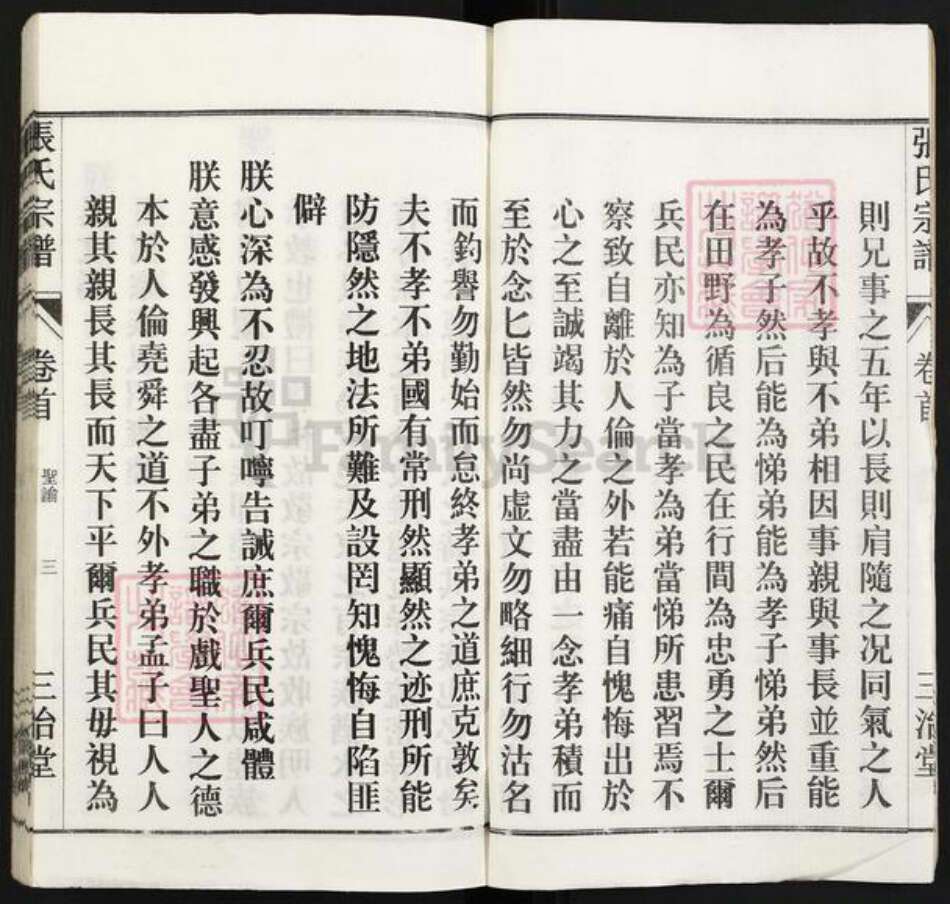 張氏宗譜 卷首 三治堂
則兄事之五年以長則肩隨之况同氣之人
乎故不孝與不弟相因事親與事長並重能
為孝子然后能為悌弟能為孝子悌弟然后
在田野為循良之民在行間為忠勇之士爾
兵民亦知為子當孝為弟當悌所患習焉不
察致自離於人倫之外若能痛自愧悔出於
心之至誠竭其力之當盡由一念孝弟積而
至於念匕皆然勿尚虛文勿略細行勿沽名
而釣譽勿勤始而怠終孝弟之道庶克敦矣
夫不孝不弟國有常刑然顯然之迹刑所能
防隱然之地法所難及設罔知愧悔自陷匪
僻
朕心深為不忍故叮嚀告誡庶爾兵民咸體
朕意感發興起各盡子弟之職於戲聖人之德
本於人倫堯舜之道不外孝弟孟子曰人人
親其親長其長而天下平爾兵民其毋視為
張氏宗譜 卷首 聖諭 三 三治堂
FamilySearch